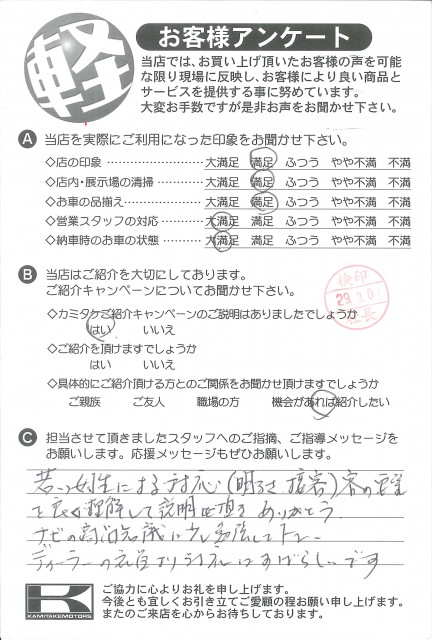 軽
お客様アンケート
当店では、お買い上げ頂いたお客様の声を可能
な限り現場に反映し、お客様により良い商品と
サービスを提供する事に努めています。
大変お手数ですが是非お声をお聞かせ下さい。
A 当店を実際にご利用になった印象をお聞かせ下さい。
◇店の印象 ……………………… 大満足 満足 ふつう やや不満 不満
◇店内・展示場の清掃 ………… 大満足 満足 ふつう やや不満 不満
◇お車の品揃え ………………… 大満足 満足 ふつう やや不満 不満
◇営業スタッフの対応 ………… 大満足 満足 ふつう やや不満 不満
◇納車時のお車の状態 ………… 大満足 満足 ふつう やや不満 不満
B 当店はご紹介を大切にしてあります。
ご紹介キャンペーンについてお聞かせ下さい。
検印
29.3.0
社長
◇カミタケご紹介キャンペーンのご説明はありましたでしょうか
はい いいえ
◇ご紹介を頂けますでしょうか
はい いいえ
◇具体的にご紹介頂ける方とのご関係をお聞かせ頂けますでしょうか
ご親族 ご友人 職場の方 機会があれば紹介したい
C 担当させて頂きましたスタッフへのご指摘、ご指導メッセージを
お願いします。応援メッセージもぜひお願いします。
若い女性による対応(明るさ 接客)客の要望
て良く理解して説明も頂き ありがとう.
ナビの商品知識に少し勉強して下さい.
ディーラーの社員より対応はすばらしいです
K
KAMITAKEMOTORS
ご協力に心よりお礼を申し上げます。
今後とも宜しくお引き立てご愛顧の程お願い申し上げます。
またのご来店を心からお待ちしております。